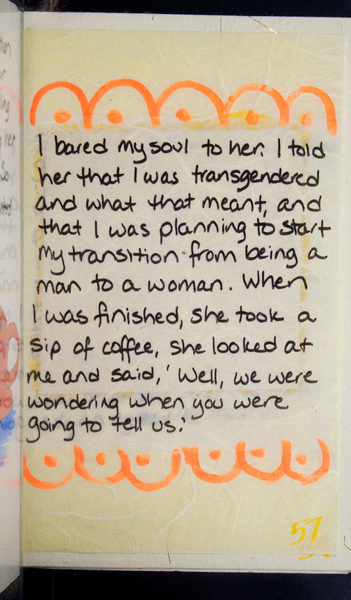 I bared my soul to her. I told
her that I was transgendered
and what that meant, and
that I was planning to start
my transition from being a
man to a woman. When
I was finished, she took a
sip of coffee, she looked at
me and said, 'Well, we were
wondering when you were
going to tell us.'
57